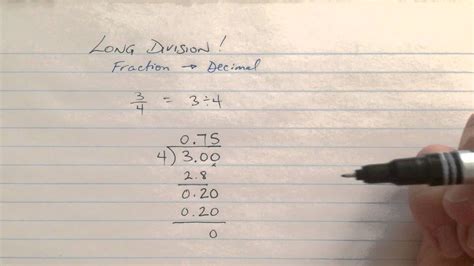 LONG DIVISION!
Fraction → Decimal
3/4 = 3÷4
0.75
4)3.00
2.8
0.20
0.20
0